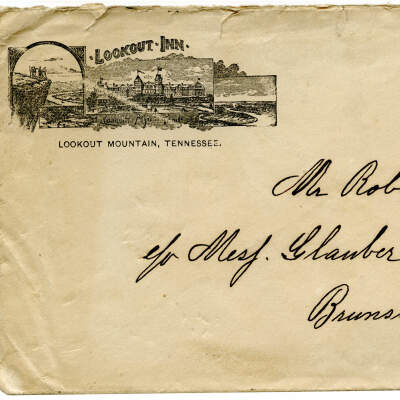 · LOOKOUT · INN ·
LOOKOUT MOUNTAIN, TENNESSEE.
Mr Rob
c/o Messf. Glauber
Bruns